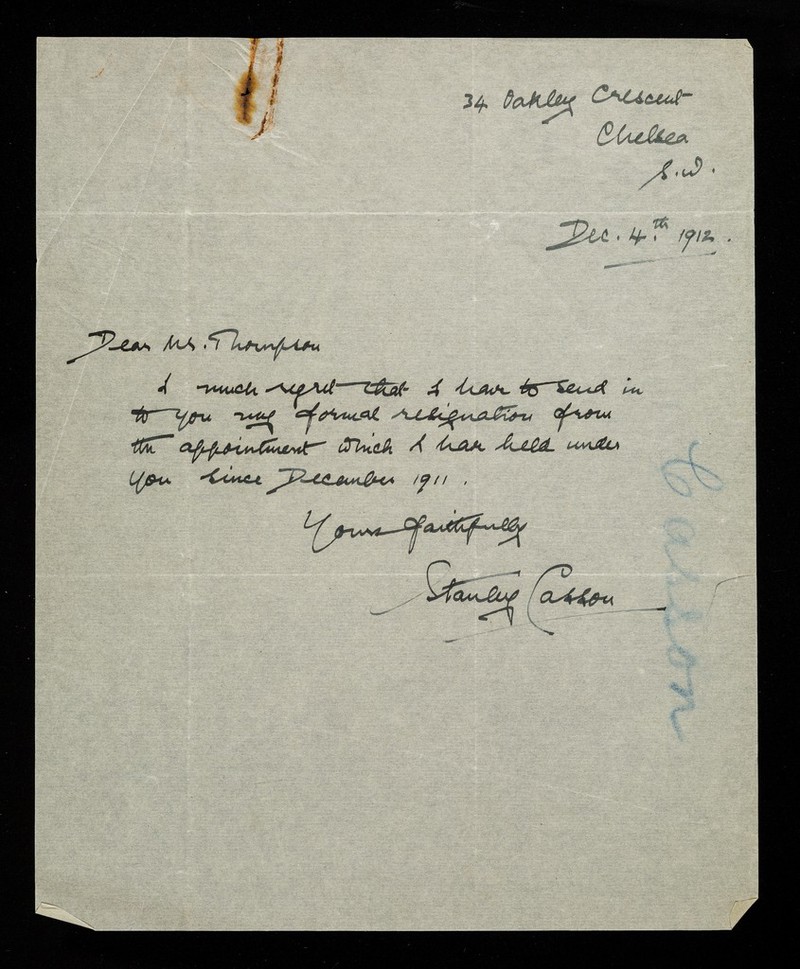 34 Oakley Crescent
Chelsea
S.W.
Dec. 4th 1912.
Dear Mr. Thompson
I much regret that I have to send in
to you my formal resignation from
the appointment which I have held under
you since December 1911.
Yours faithfully
Stanley Casson
Casson